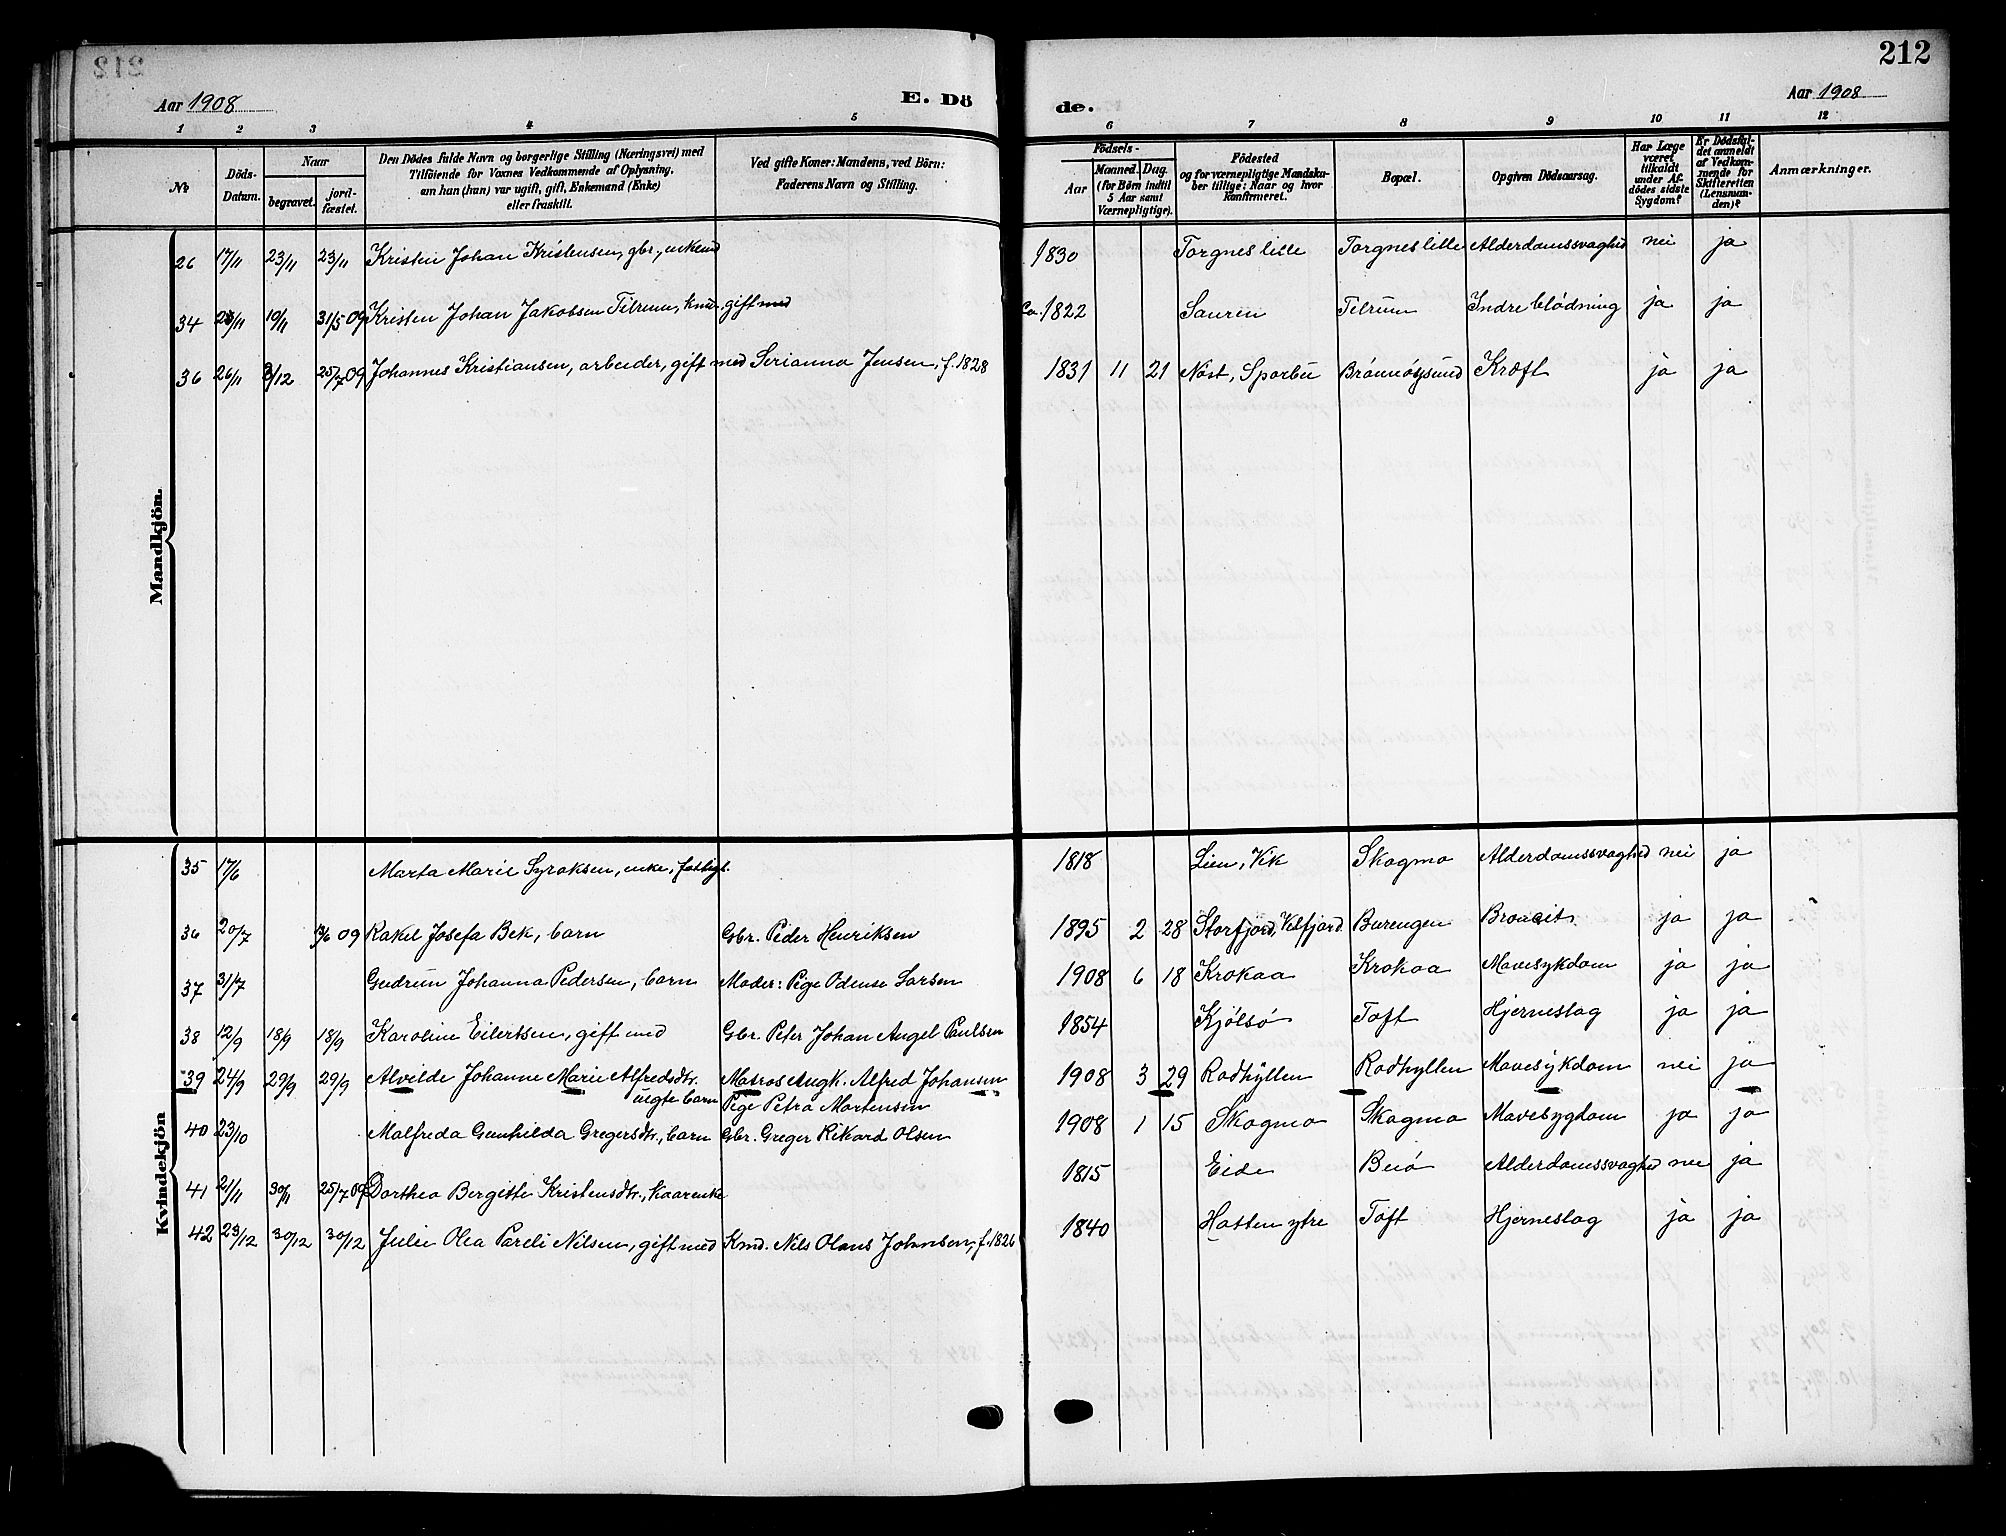 212
Aar 1908
E. Dö
de.
Aar 1908
1 2 3 4 5
6 7 8 9 10 11 12
No
Döds-Datum.
Naar
begravet.
jord-fæstet.
Den Dödes fulde Navn og borgerlige Stilling (Næringsvei) med
Tilföiende for Voxnes Vedkommende af Oplysning,
om han (hun) var ugift, gift, Enkemand (Enke)
eller fraskilt.
Ved gifte Koner: Mandens, ved Börn:
Faderens Navn og Stilling.
Födsels-
Aar
Maaned. Dag.
(for Börn indtil
5 Aar samt
Værnepligtige).
Födested
og for værnepligtige Mandska-
ber tillige: Naar og hvor
konfirmeret.
Bopæl.
Opgiven Dödsaarsag.
Har Læge
været
tilkaldt
under Af-
dödes sidste
Sygdom?
Er Dödsfal-
det anmeldt
af Vedkom-
mende for
Skifteretten
(Lensman-
den)?
Anmærkninger.
Mandkjön.
26 17/11 23/11 23/11 Kristen Johan Kristensen, gbr., enkemd 1830 Torgnes lille Torgnes lille Alderdomssvaghed nei ja
34 10/11 31/5 09 Kristen Johan Jakobsen Tilrum, kmd. gift med Ca. 1822 Sauren Tilrum Indre blødning ja ja
36 26/11 3/12 25/7 09 Johannes Kristiansen, arbeider, gift med Serianna Jensen, f. 1828 1831 11 21 Nøst, Sparbu Brønnøysund Kræft ja ja
Kvindekjön
35 17/6 Marta Marie Syraksen, enke, fattigl. 1818 Lien, Vik Skogmo Alderdomssvaghed nei ja
36 20/7 09 Rakel Josefa Bek, barn Gbr. Peder Henriksen 1895 2 28 Storfjord, Velfjord Burengen ja ja
37 31/7 Gudrun Johanna Pedersen, barn Moder: Pige Odense Larsen 1908 6 18 Krokaa Krokaa Mavesykdom ja ja
38 12/9 18/9 18/9 Karoline Eilertsen, gift med Gbr. Peter Johan Angel Paulsen 1854 Kjølsø Toft Hjerneslag ja ja
39 24/9 29/9 29/9 Alvilde Johanne Marie Alfredsdtr. Matros Ungk. Alfred Johansen 1908 3 29 Rodhyllen Rodhyllen Mavesykdom nei ja
uegte barn Pige Petra Martensen
40 23/10 Malfreda Gunhilda Gregersdtr., barn Gbr. Greger Rikard Olsen 1908 1 15 Skogmo Skogmo Mavesygdom ja ja
41 21/11 30/11 25/7 09 Dorthea Bergitte Kristensdtr., kaarenke 1815 Eide Beiø Alderdomssvaghed nei ja
42 23/12 30/12 30/12 Julie Olea Pareli Nilsen, gift med Kmd. Nils Olaus Johansen, f. 1826 1840 Hatten ytre Toft Hjerneslag ja ja